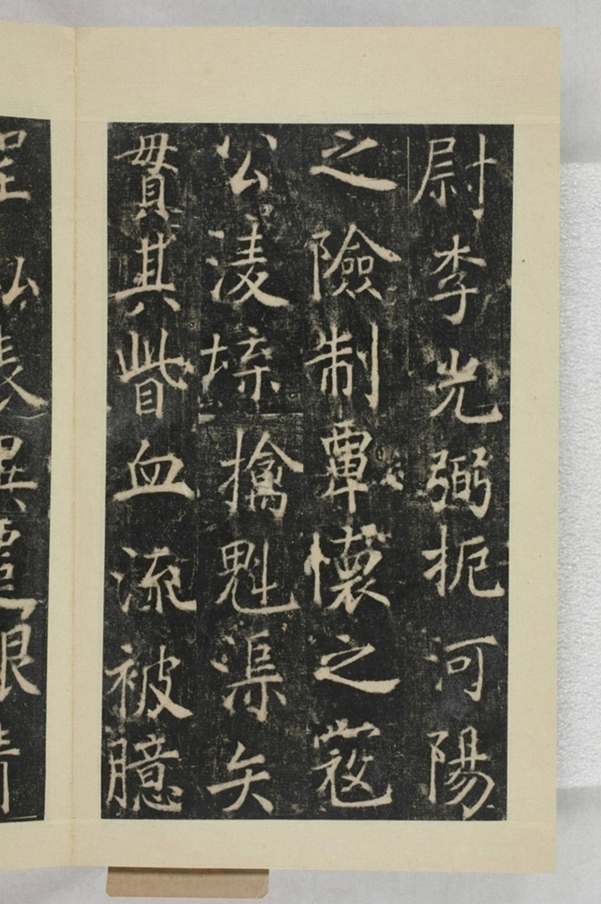 尉李光弼扼河陽
之險制覃懷之寇
公凌堞擒魁渠矢
貫其眥血流被臆